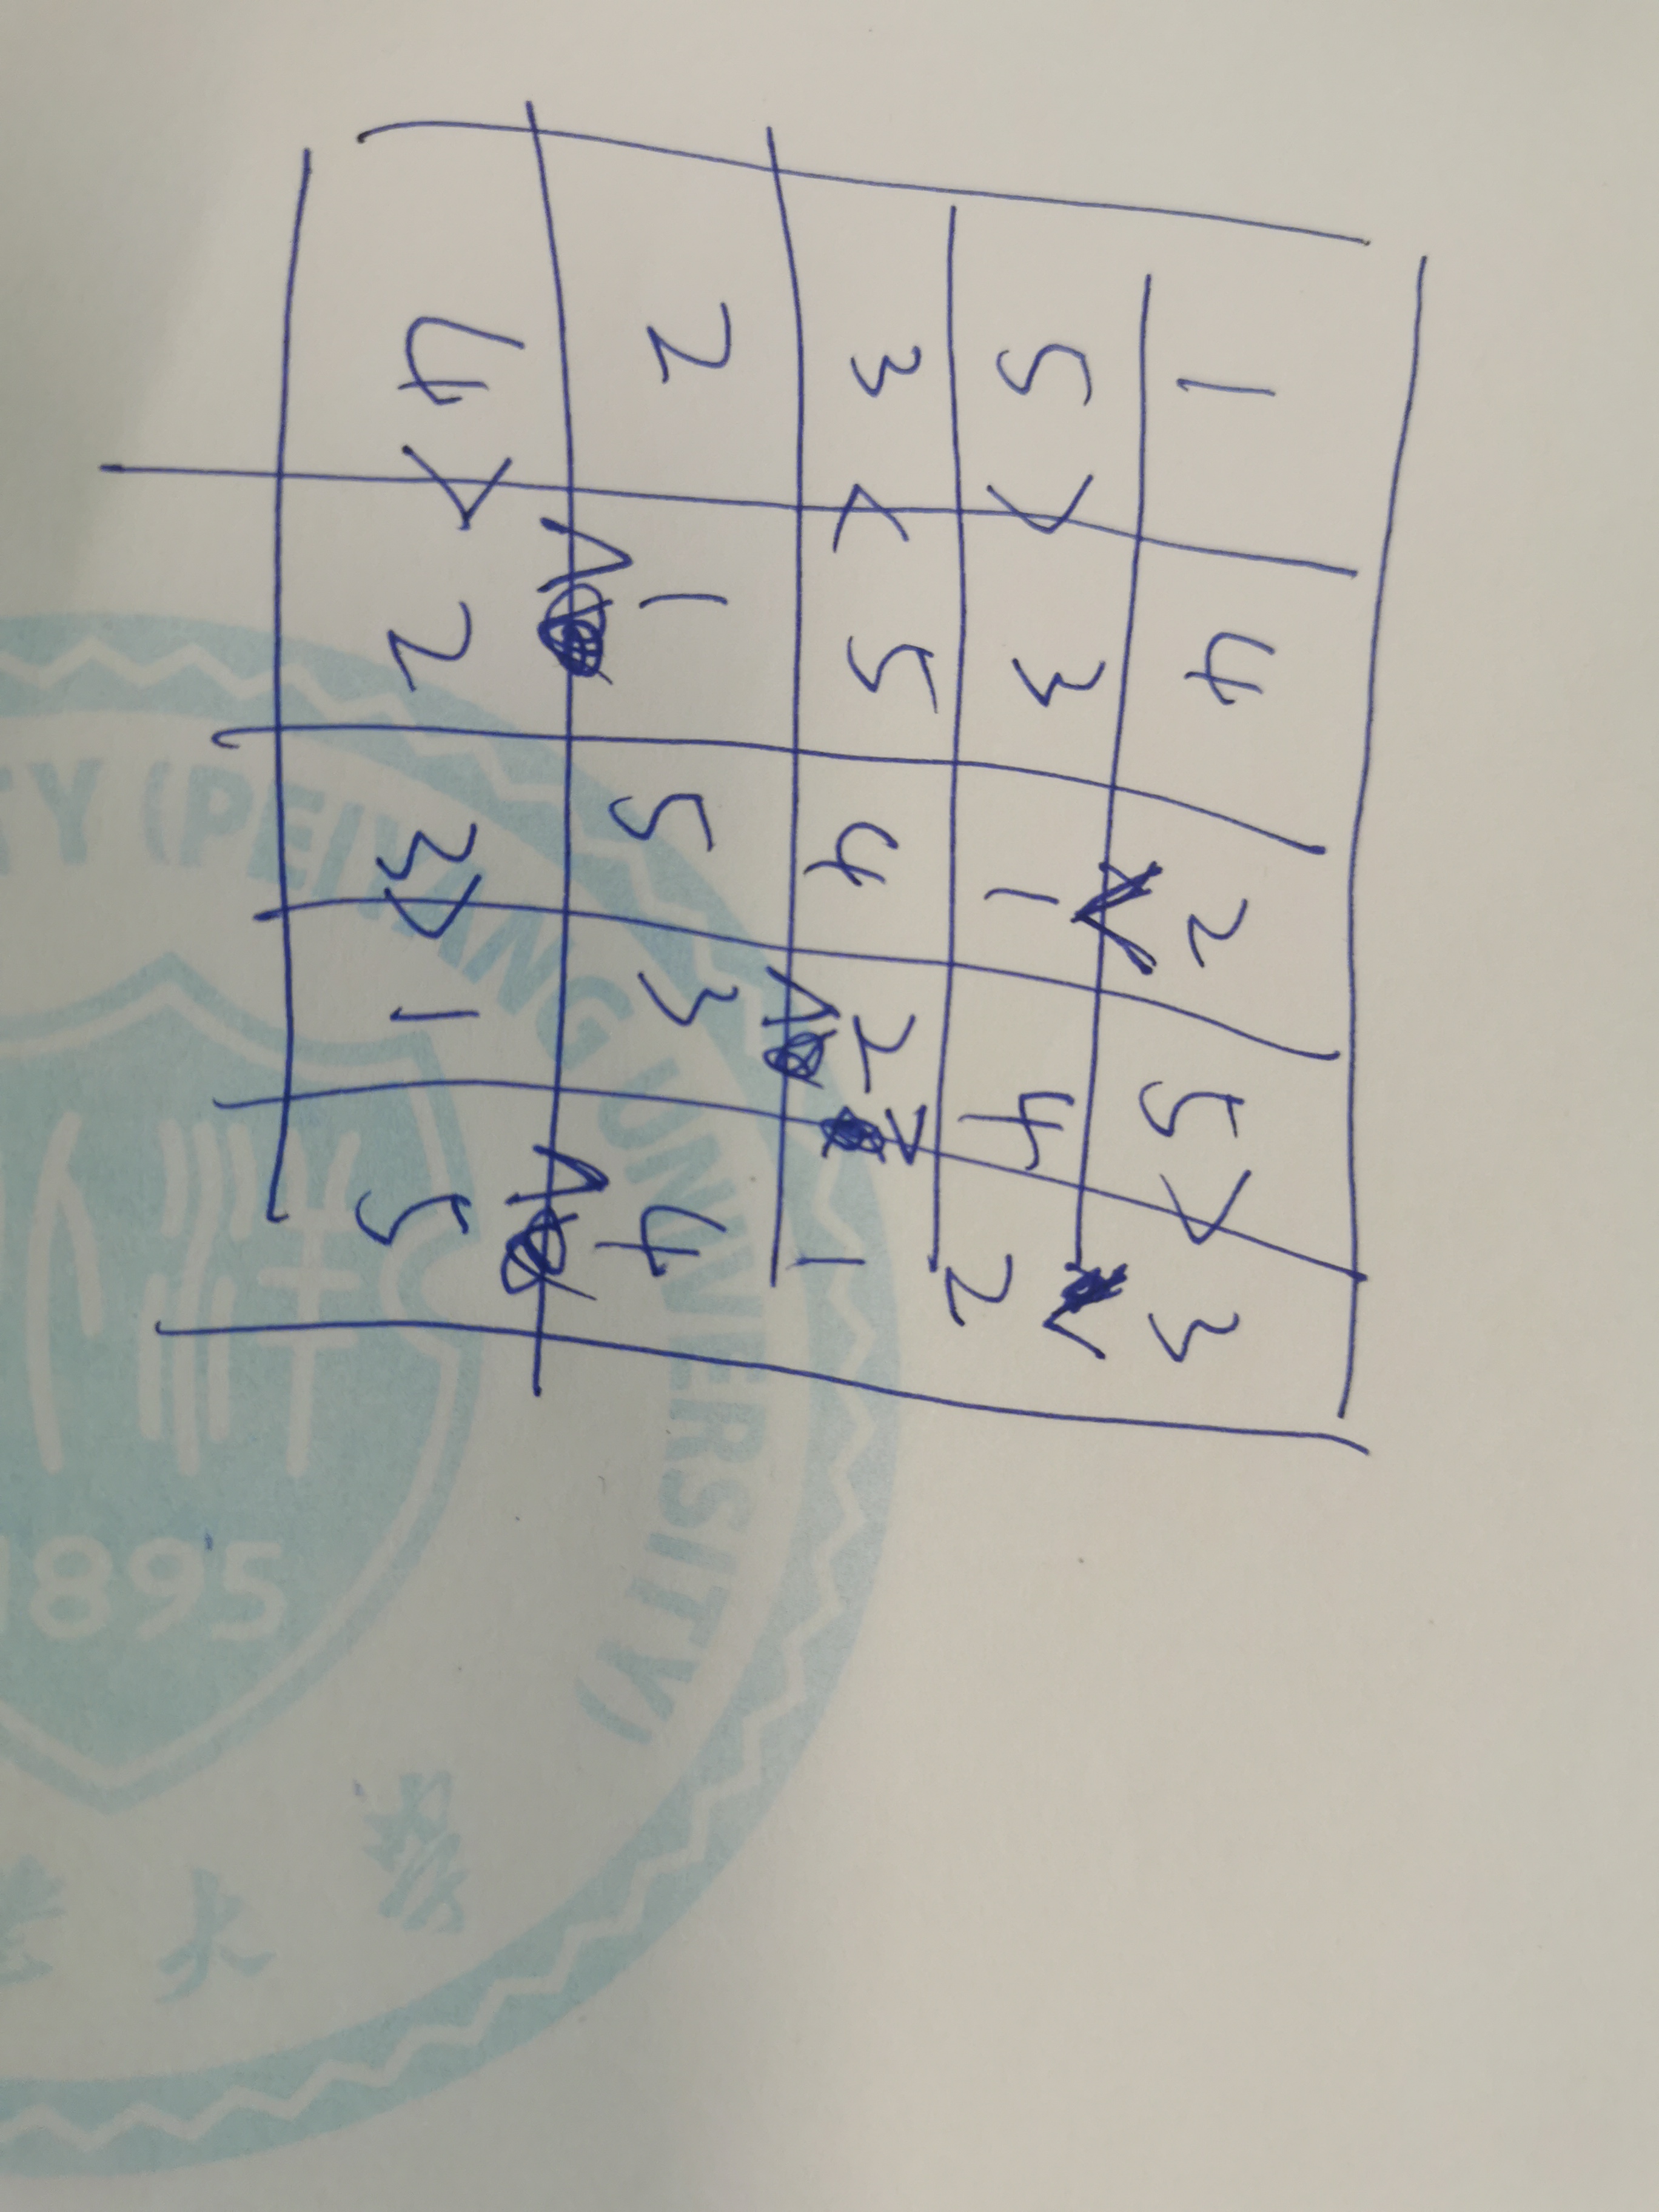 1 4 2 5 > 3
∨ ∨
5 > 3 1 4 2
3 < 5 4 2 > 1
∧
2 1 5 3 4
∧ ∧
4 > 2 3 > 1 5
TY (PEIYANG UNIVERSITY)
1895
大